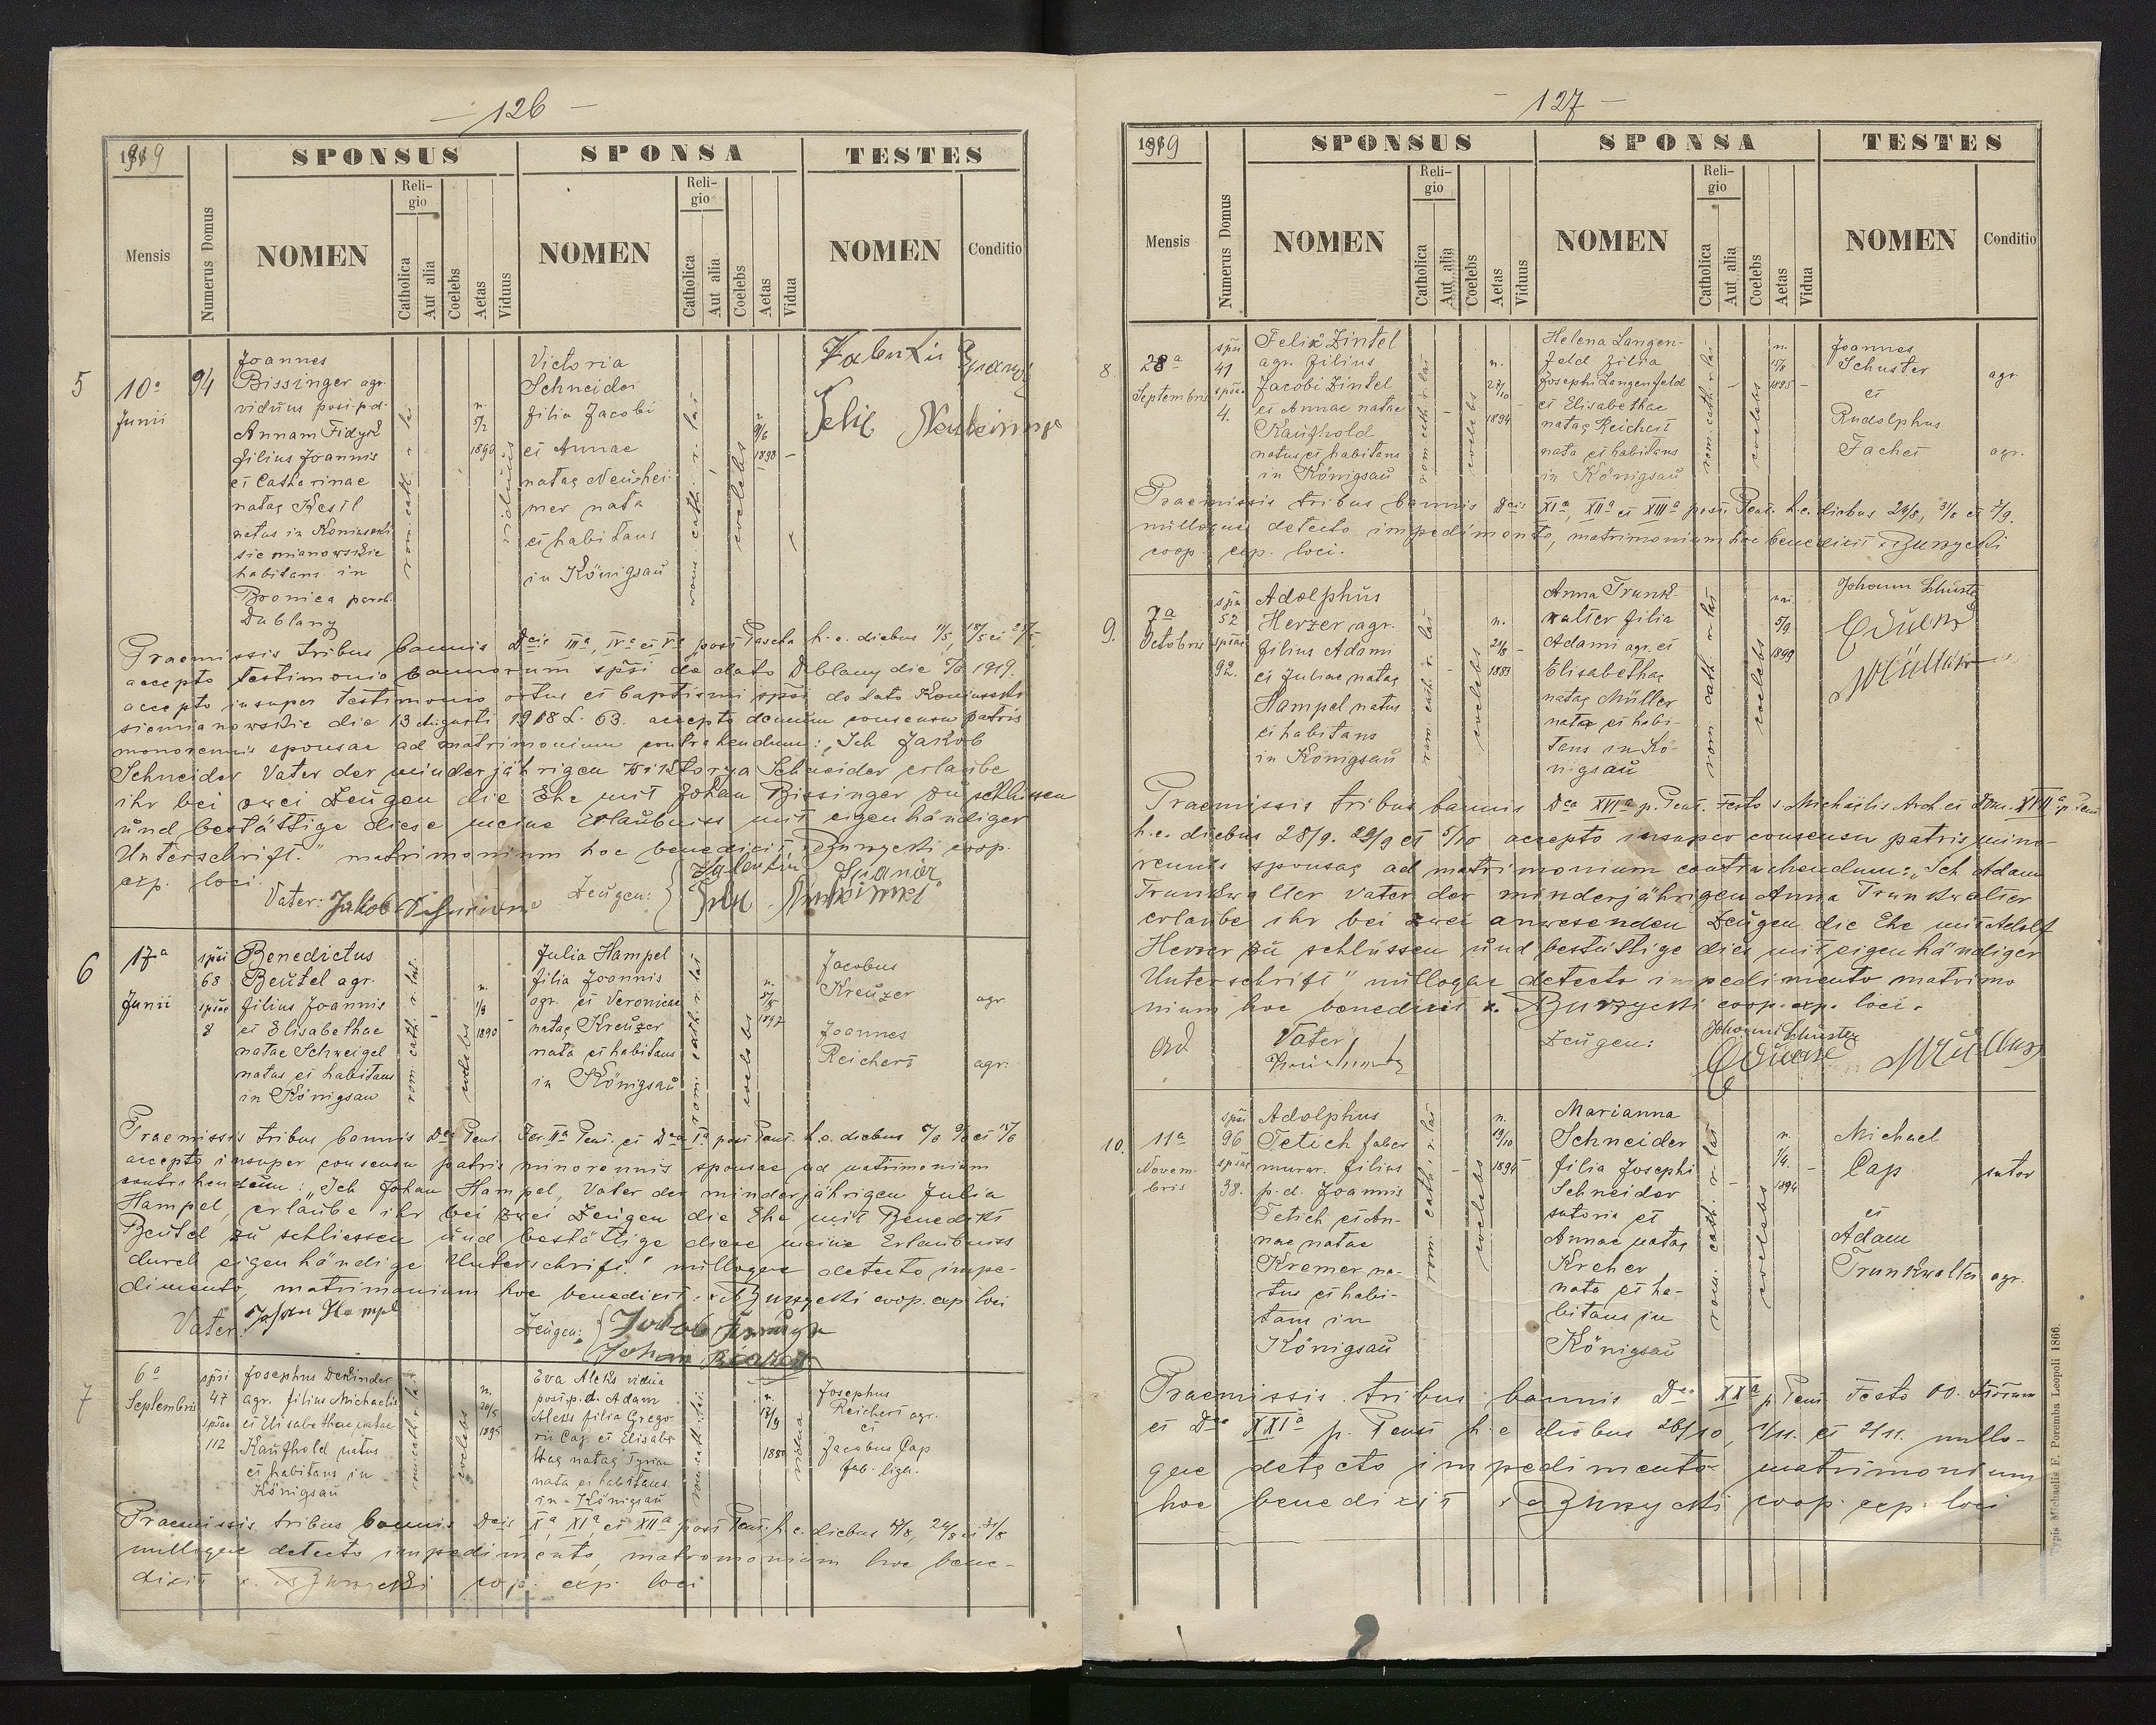 - 126 -
1919
SPONSUS
SPONSA
TESTES
Mensis
Numerus Domus
NOMEN
Religio
Catholica
Aut alia
Coelebs
Aetas
Viduus
NOMEN
Religio
Catholica
Aut alia
Coelebs
Aetas
Vidua
NOMEN
Conditio
5
10a
Junii
94
Joannes
Bissinger agr.
viduus post p.d.
Annam Fidyk
filius Joannis
et Catharinae
natae Kesil
natus in Koniuszki
siemianowskie
habitans in
Bronica paroch.
Dublany
rom. cath. r. lat.
n.
1890
viduus
Victoria
Schneider
filia Jacobi
et Annae
natae Neuhei-
mer nata
et habitans
in Königsau
rom. cath. r. lat.
coelebs
n.
9/6
1898
-
Felix Neuheimer
Praemissis tribus bannis Dcis IIIa, IVa et Va post Pascha h. e. diebus 11/5, 18/5 et 25/5
accepto testimonio bannorum spsi de dato Dublany die 1919.
accepto insuper testimonio ortus et baptismi spsi de dato Koniuszki
siemianowskie die 13 Augusti 1918 L. 63. accepto demum consensu patris
minorennis sponsae ad matrimonium contrahendum: "Ich Jakob
Schneider Vater der minderjährigen Wiktorya Schneider erlaube
ihr bei zwei Zeugen die Ehe mit Johan Bissinger zu schlissen
und bestättige diese meine Erlaubniss mit eigenhändiger
Unterschrift." matrimonium hoc benedixit coop.
exp. loci.
Vater: Jakob
Zeugen:
6
17a
Junii
spsi
68
spsae
8
Benedictus
Beutel agr.
filius Joannis
et Elisabethae
natae Schweigel
natus et habitans
in Königsau
rom. cath. r. lat.
-
coelebs
n.
1890
-
Julia Hampel
filia Joannis
agr. et Veronicae
natae Kreuzer
nata et habitans
in Königsau
rom. cath. r. lat
coelebs
n.
1897
Jacobus
Kreuzer
agr.
Joannes
Reichert
agr.
Praemissis tribus bannis Dca Pent. Fer. IIa Pent. et Dca Ia post Pent. h. e. diebus 8/6 9/6 et 15/6
accepto insuper consensu patris minorennis sponsae ad matrimonium
contrahendum: "Ich Johan Hampel, Vater der minderjährigen Julia
Hampel, erlaube ihr bei zwei Zeugen die Ehe mit Benedikt
Beutel zu schliessen und bestättige diese meine Erlaubniss
durch eigenhändige Unterschrift." nulloque detecto impe-
dimento, matrimonium hoc benedixit coop. exp. loci
Vater: Johan Hampel
Zeugen:
7
6a
Septembris
spsi
47
spsae
112
Josephus Dekinder
agr. filius Michaelis
et Elisabethae natae
Kaufhold natus
et habitans in
Königsau
rom. cath. r. lat.
coelebs
n.
20/5
1895
Eva Aleks vidua
post p.d. Adam
Aleks filia Grego-
rii Cap. et Elisabe-
thae natae
nata et habitans
in Königsau
rom. cath. r. lat.
n.
vidua
Josephus
Reichert agr.
et
Jacobus Cap
fab. lign.
Praemissis tribus bannis Dcis Xa, XIa, et XIIa post Pent. h. e. diebus 17/8, 24/8 et 31/8
nulloque detecto impedimento, matromonium hoc bene-
dixit coop. exp. loci
- 127 -
1919
SPONSUS
SPONSA
TESTES
Mensis
Numerus Domus
NOMEN
Religio
Catholica
Aut alia
Coelebs
Aetas
Viduus
NOMEN
Religio
Catholica
Aut alia
Coelebs
Aetas
Vidua
NOMEN
Conditio
8.
28a
Septembris
spsi
41
spsae
4.
Felix Zintel
agr. filius
Jacobi Zintel
et Annae natae
Kaufhold
natus et habitans
in Königsau
rom. cath. r. lat
-
coelebs
n.
27/10
1894
-
Helena Langen-
feld filia
Josephi Langenfeld
et Elisabethae
natae Reichert
nata et habitans
in Königsau
rom. cath. r. lat
-
coelebs
n.
15/8
1895
-
Joannes
Schuster
agr.
et
Rudolphus
Fachet
agr.
Praemissis tribus bannis Dcis XIa, XIIa et XIIIa post Pent. h. e. diebus 24/8, 31/8 et 7/9.
nulloque detecto impedimento, matrimonium hoc benedixit
coop. exp. loci.
9.
7a
Octobris
spsi
52
spsae
92.
Adolphus
Herzer agr.
filius Adami
et Juliae natae
Hampel natus
et habitans
in Königsau
rom. cath. r. lat.
-
coelebs
n.
1889
-
Anna Trunk-
walter filia
Adami agr. et
Elisabethae
natae Müller
nata et habi-
tans in Kö-
nigsau
rom. cath. r. lat
coelebs
nat.
5/9
1899
Johann Schuster
Müller
Praemissis tribus bannis Dca XVIa p. Pent. Festo s. Michaelis Arch. et Dom. XVIIa p. Pent
h. e. diebus 28/9. 29/9 et 5/10 accepto insuper consensu patris mino-
rennis sponsae ad matrimonium contrahendum: "Ich Adam
Trunkwalter Vater der minderjährigen Anna Trunkwalter
erlaube ihr bei zwei anwesenden Zeugen die Ehe mit Adolf
Herzer zu schlüssen und bestättige dies mit eigenhändiger
Unterschrift" nulloque detecto impedimento matrimo
nium hoc benedixit coop. exp. loci.
Vater
Zeugen:
Johann Schuster
Müller
10.
11a
Novem-
bris
spsi
96
spsae
38.
Adolphus
Tetich faber
murar. filius
p.d. Joannis
Tetich et An-
nae natae
Kremer na-
tus et habi-
tans in
Königsau
rom. cath. r. lat
-
coelebs
n.
19/10
1894
-
Marianna
Schneider
filia Josephi
Schneider
sutoris et
Annae natae
Kreher
nata et ha-
bitans in
Königsau
rom. cath. r. lat
-
coelebs
n.
1894
-
Michael
Cap
sutor
et
Adam
Trunkwalter
agr.
Praemissis tribus bannis Dca XXa p. Pent. Festo OO. Storum
et Dca XXIa p. Pent. h. e. diebus 26/10, 1/11. et 2/11. nullo-
que detecto impedimento matrimonium
hoc benedixit coop. exp. loci
Typis Michaelis F. Poremba Leopoli 1866.